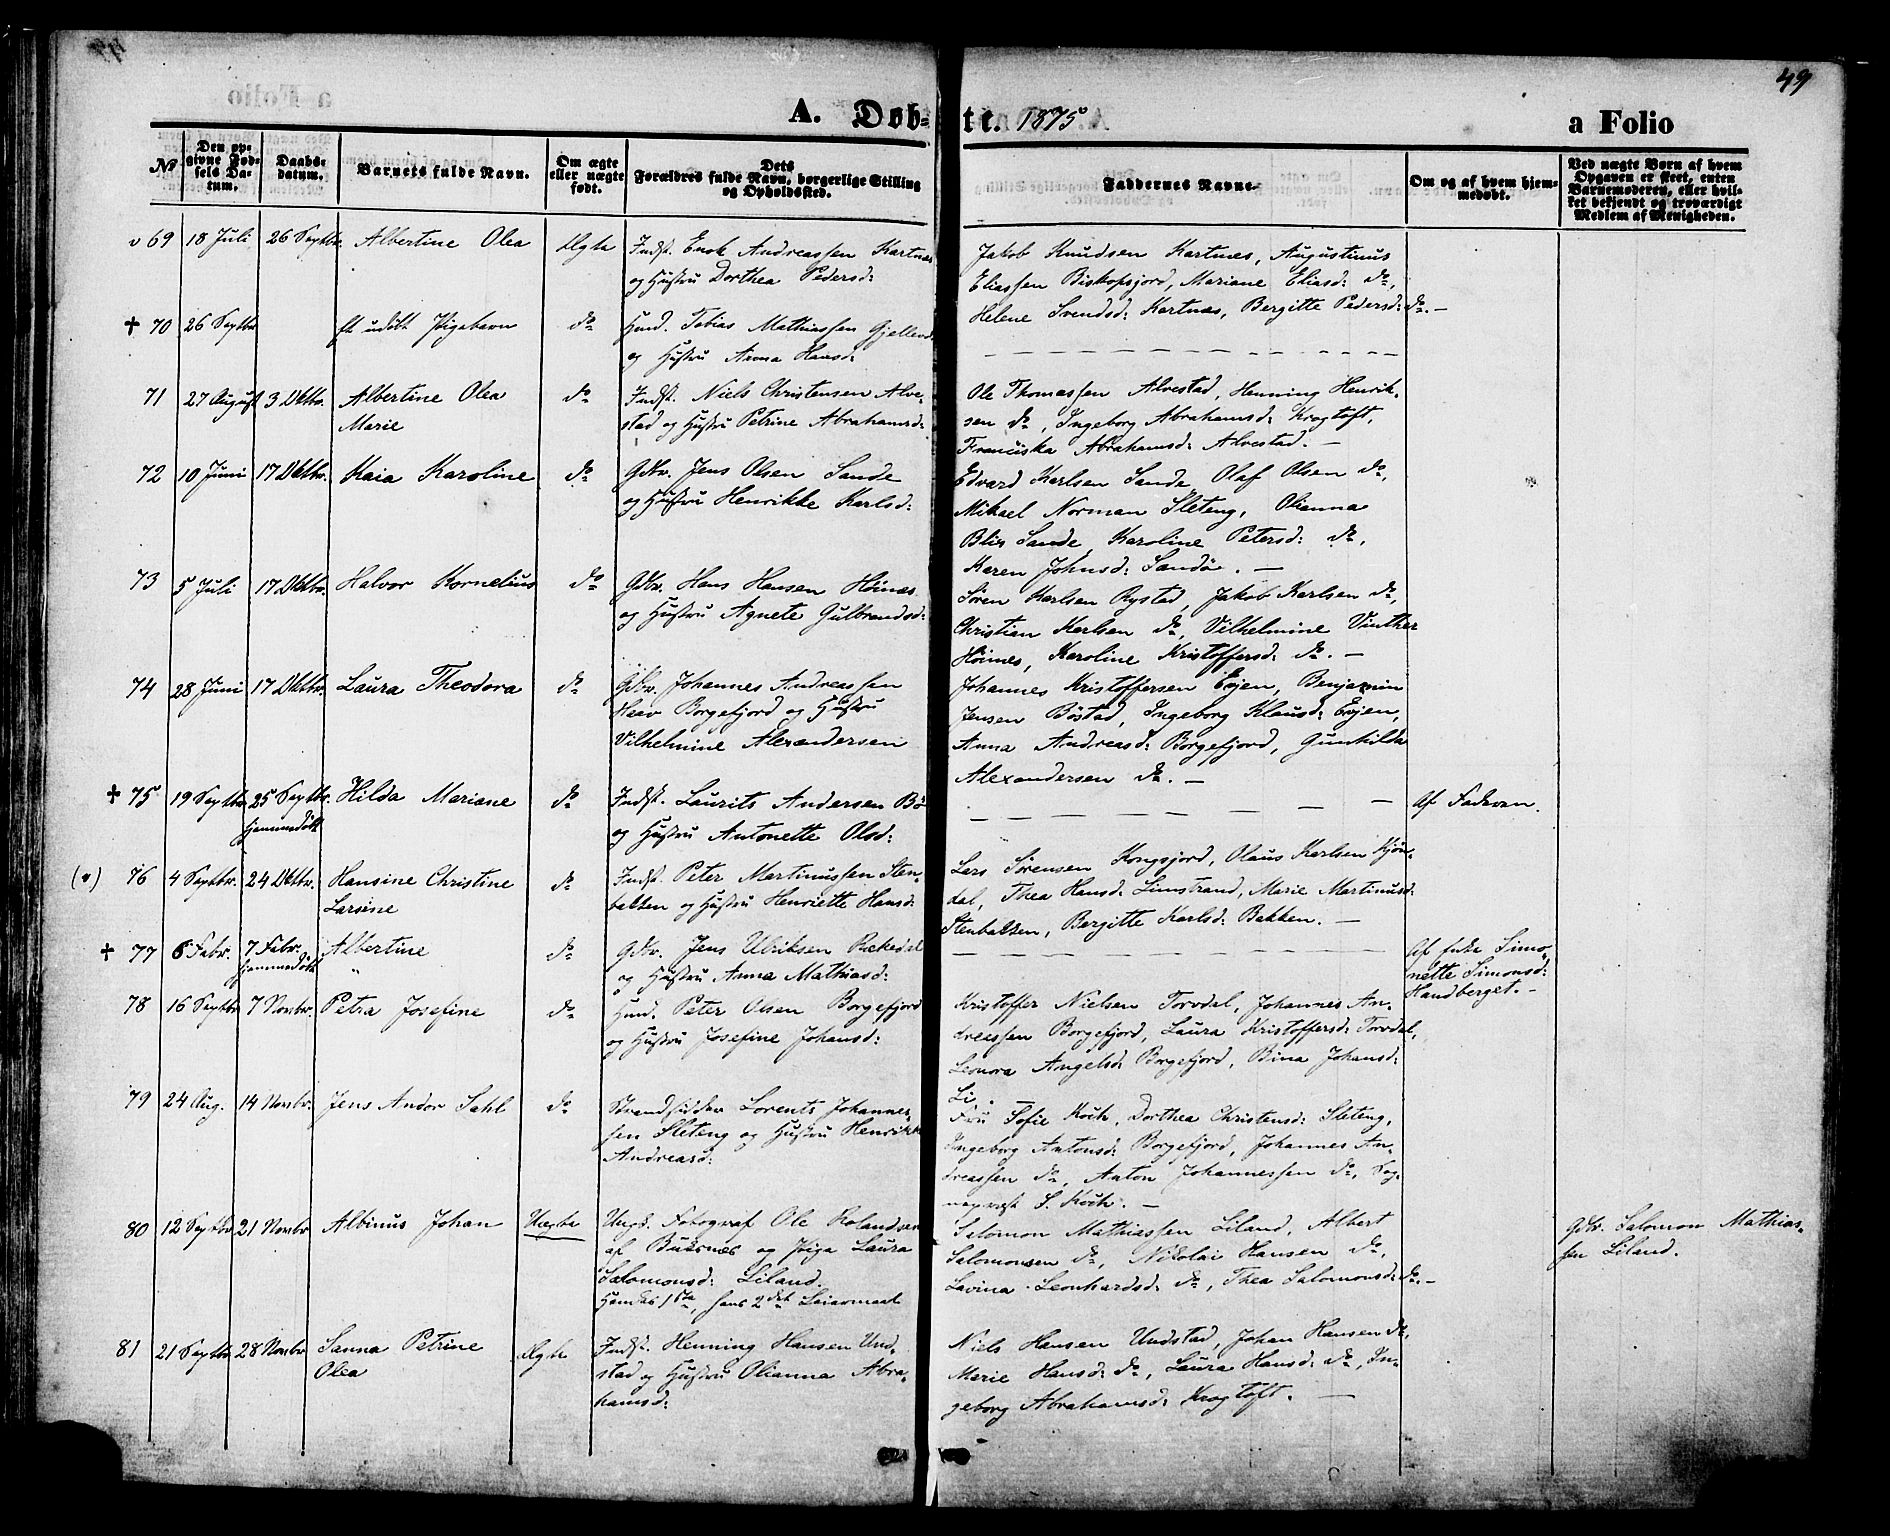 49
A. Døb- te. 1875
a Folio
No
Den op-
givne Fød-
sels Da-
tum.
Daabs-
datum.
Barnets fulde Navn.
Om ægte
eller uægte
født.
Dets
Forældres fulde Navn, borgerlige Stilling
og Opholdssted.
Faddernes Navne.
Om og af hvem hjem-
medøbt.
Ved uægte Børn af hvem
Opgaven er skeet, enten
Barnemoderen, eller hvil-
ket bekjendt og troværdigt
Medlem af Menigheden.
v 69 18 Juli 26 Septbr. Albertine Olea Ægte Indst. Enok Andreassen Kartnæs
og Hustru Dorthea Pedersd:
Jakob Knudsen Kartnæs, Augustinus
Eliassen Biskopsjord, Mariane Eliasd: do,
Helene Svendsd: Kartnæs, Bergitte Pedersd: do. —
† 70 26 Septbr. et udøbt Pigebarn do Huusd. Tobias Mathiassen Gjellevold
og Hustru Anna Hansd:
71 27 August 3 Oktbr. Albertine Olea
Marie
do Indst. Niels Christensen Alve-
stad og Hustru Petrine Abrahamsd:
Ole Thomassen Alvestad, Henning Henrik-
sen do, Ingeborg Abrahamsd: Krogtoft,
Franciska Abrahamsd: Alvestad. —
72 10 Juni 17 Oktbr. Kaia Karoline do Gdbr. Jens Olsen Sande
og Hustru Henrikke Karlsd:
Edvard Karlsen Sande, Olaf Olsen do,
Mikael Norman Sleteng, Olianna
Blix Sande, Karoline Petersd: do,
Karen Johnsd: Sandøe. —
73 5 Juli 17 Oktbr. Halvor Kornelius do Gdbr. Hans Hansen Høinæs
og Hustru Agnete Gulbrandsd:
Søren Karlsen Rystad, Jakob Karlsen do,
Christian Karlsen do, Vilhelmine Vinther
Høinæs, Karoline Kristoffersd: do. —
74 28 Juni 17 Oktbr. Laura Theodora do Gdbr. Johannes Andreassen
Haav Borgefjord og Hustru
Vilhelmine Alexandersen
Johannes Kristoffersen Evjen, Benjamin
Jensen Bøstad, Ingeborg Klausd: Evjen,
Anna Andreasd: Borgefjord, Gunhilda
Alexandersen do. —
† 75 19 Septbr. 25 Septbr.
hjemmedøbt
Hilda Mariane do Indst. Laurits Andersen Bø
og Hustru Antonette Olsd:
Af Faderen.
(v) 76 4 Septbr. 24 Oktbr. Hansine Christine
Larsine
do Indst. Peter Martinussen Sten-
bakken og Hustru Henriette Hansd:
Lars Sørensen Kongsjord, Olaus Karlsen Kjøn-
dal, Thea Hansd: Limstrand, Marie Martinusd:
Stenbakken, Bergitte Karlsd: Bakken. —
† 77 6 Febr. 7 Febr.
hjemmedøbt
Albertine do Gdbr. Jens Ulriksen Rækedal
og Hustru Anna Mathiasd:
Af Enke Simo-
nette Simonsd:
Handberget. —
78 16 Septbr. 7 Novbr. Petra Josefine do Huusd. Peter Olsen Borgefjord
og Hustru Josefine Johansd:
Kristoffer Nielsen Torvdal, Johannes An-
dreassen Borgefjord, Laura Kristoffersd: Torvdal,
Leonora Angelsd: Borgefjord, Bina Johansd:
Li. —
79 24 Aug. 14 Novbr. Jens Andor Sahl do Strandsidder Lorents Johannes-
sen Sleteng og Hustru Henrikke
Andreasd:
Fru Sofie Koch, Dorthea Christensd: Sleteng,
Ingeborg Antonsd: Borgefjord, Johannes An-
dreassen do, Anton Johannessen do, Sog-
nepræst S. Koch. —
80 12 Septbr. 21 Novbr. Albinus Johan Uægte Ungk. Fotograf Ole Rolandsen
af Buksnæs og Pige Laura
Salomonsd: Liland.
Hendes 1ste, hans 2det Leiermaal
Salomon Mathiassen Liland, Albert
Salomonsen do, Nikolai Hansen do,
Lavina Leonhardsd: do, Thea Salomonsd: do. —
Gdbr. Salomon Mathias-
sen Liland.
81 21 Septbr. 28 Novbr. Sanna Petrine
Olea
Ægte Indst. Henning Hansen Und-
stad og Hustru Olianna Abra-
hamsd:
Niels Hansen Undstad, Johan Hansen do,
Marie Hansd: do, Laura Hansd: do, In-
geborg Abrahamsd: Krogtoft. —